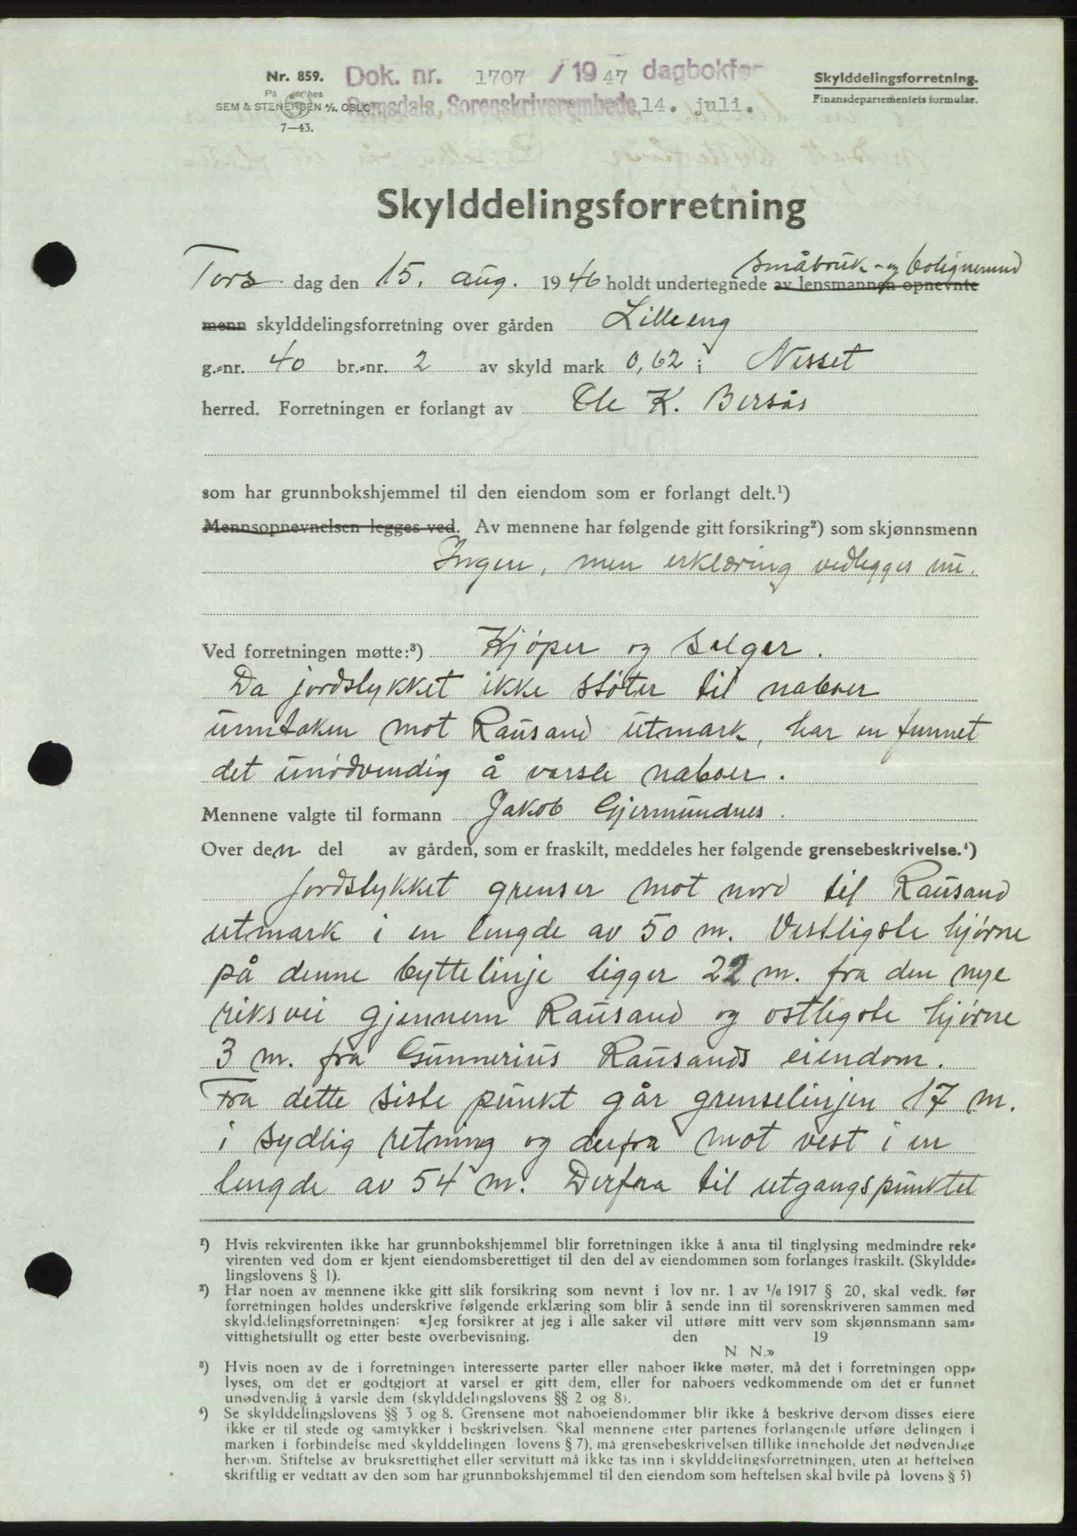 Nr. 859.
På lager hos
SEM & STENERSEN A/S, OSLO
7—43.
Dok. nr. 1707 / 1947 dagbokfør
Romsdals, Sorenskriverembede, 14. juli.
Skylddelingsforretning.
Finansdepartementets formular.
Skylddelingsforretning
småbruk- og bolignemnd
Tors dag den 15. aug. 1946 holdt undertegnede av lensmannen opnevnte
menn skylddelingsforretning over gården Lilleeng
g.-nr. 40 br.-nr. 2 av skyld mark 0,62 i Nesset
herred. Forretningen er forlangt av Ole K. Bersås
som har grunnbokshjemmel til den eiendom som er forlangt delt.¹)
Mennsopnevnelsen legges ved. Av mennene har følgende gitt forsikring²) som skjønnsmenn
Ingen, men erklæring vedlegges nu.
Ved forretningen møtte:³) Kjøper og selger.
Da jordstykket ikke støter til naboer
unntaken mot Rausand utmark, har en funnet
det unødvendig å varsle naboer.
Mennene valgte til formann Jakob Gjermundnes.
Over den del av gården, som er fraskilt, meddeles her følgende grensebeskrivelse.⁴)
Jordstykket grenser mot nord til Rausand
utmark i en lengde av 50 m. Vestligste hjørne
på denne byttelinje ligger 22 m. fra den nye
riksvei gjennem Rausand og østligste hjørne
3 m. fra Gunnerius Rausands eiendom.
Fra dette siste punkt går grenselinjen 17 m.
i sydlig retning og derfra mot vest i en
lengde av 54 m. Derfra til utgangspunktet
¹) Hvis rekvirenten ikke har grunnbokshjemmel blir forretningen ikke å anta til tinglysing medmindre rek-
virenten ved dom er kjent eiendomsberettiget til den del av eiendommen som forlanges fraskilt. (Skyldde-
lingslovens § 1).
²) Har noen av mennene ikke gitt slik forsikring som nevnt i lov nr. 1 av 1/6 1917 § 20, skal vedk. før
forretningen holdes underskrive følgende erklæring som blir å sende inn til sorenskriveren sammen med
skylddelingsforretningen: «Jeg forsikrer at jeg i alle saker vil utføre mitt verv som skjønnsmann sam-
vittighetsfullt og etter beste overbevisning. den 19
N. N.»
³) Hvis noen av de i forretningen interesserte parter eller naboer ikke møter, må det i forretningen opp-
lyses, om det er godtgjort at varsel er gitt dem, eller for naboers vedkommende om det er funnet
unødvendig å varsle dem (skylddelingslovens §§ 2 og 8).
⁴) Se skylddelingslovens §§ 3 og 8. Grensene mot naboeiendommer blir ikke å beskrive dersom disses eiere
ikke er til stede og samtykker i beskrivelsen. Skal mennene etter partenes forlangende utføre delingen i
marken i forbindelse med skylddelingen lovens § 7), må grensebeskrivelsen tillike inneholde det nødvendige
herom. Stiftelse av bruksrettighet eller servitutt må ikke tas inn i skylddelingsforretningen, uten at heftelsen
skriftlig er vedtatt av den som har grunnbokshjemmel til den eiendom som heftelsen skal hvile på lovens § 5)